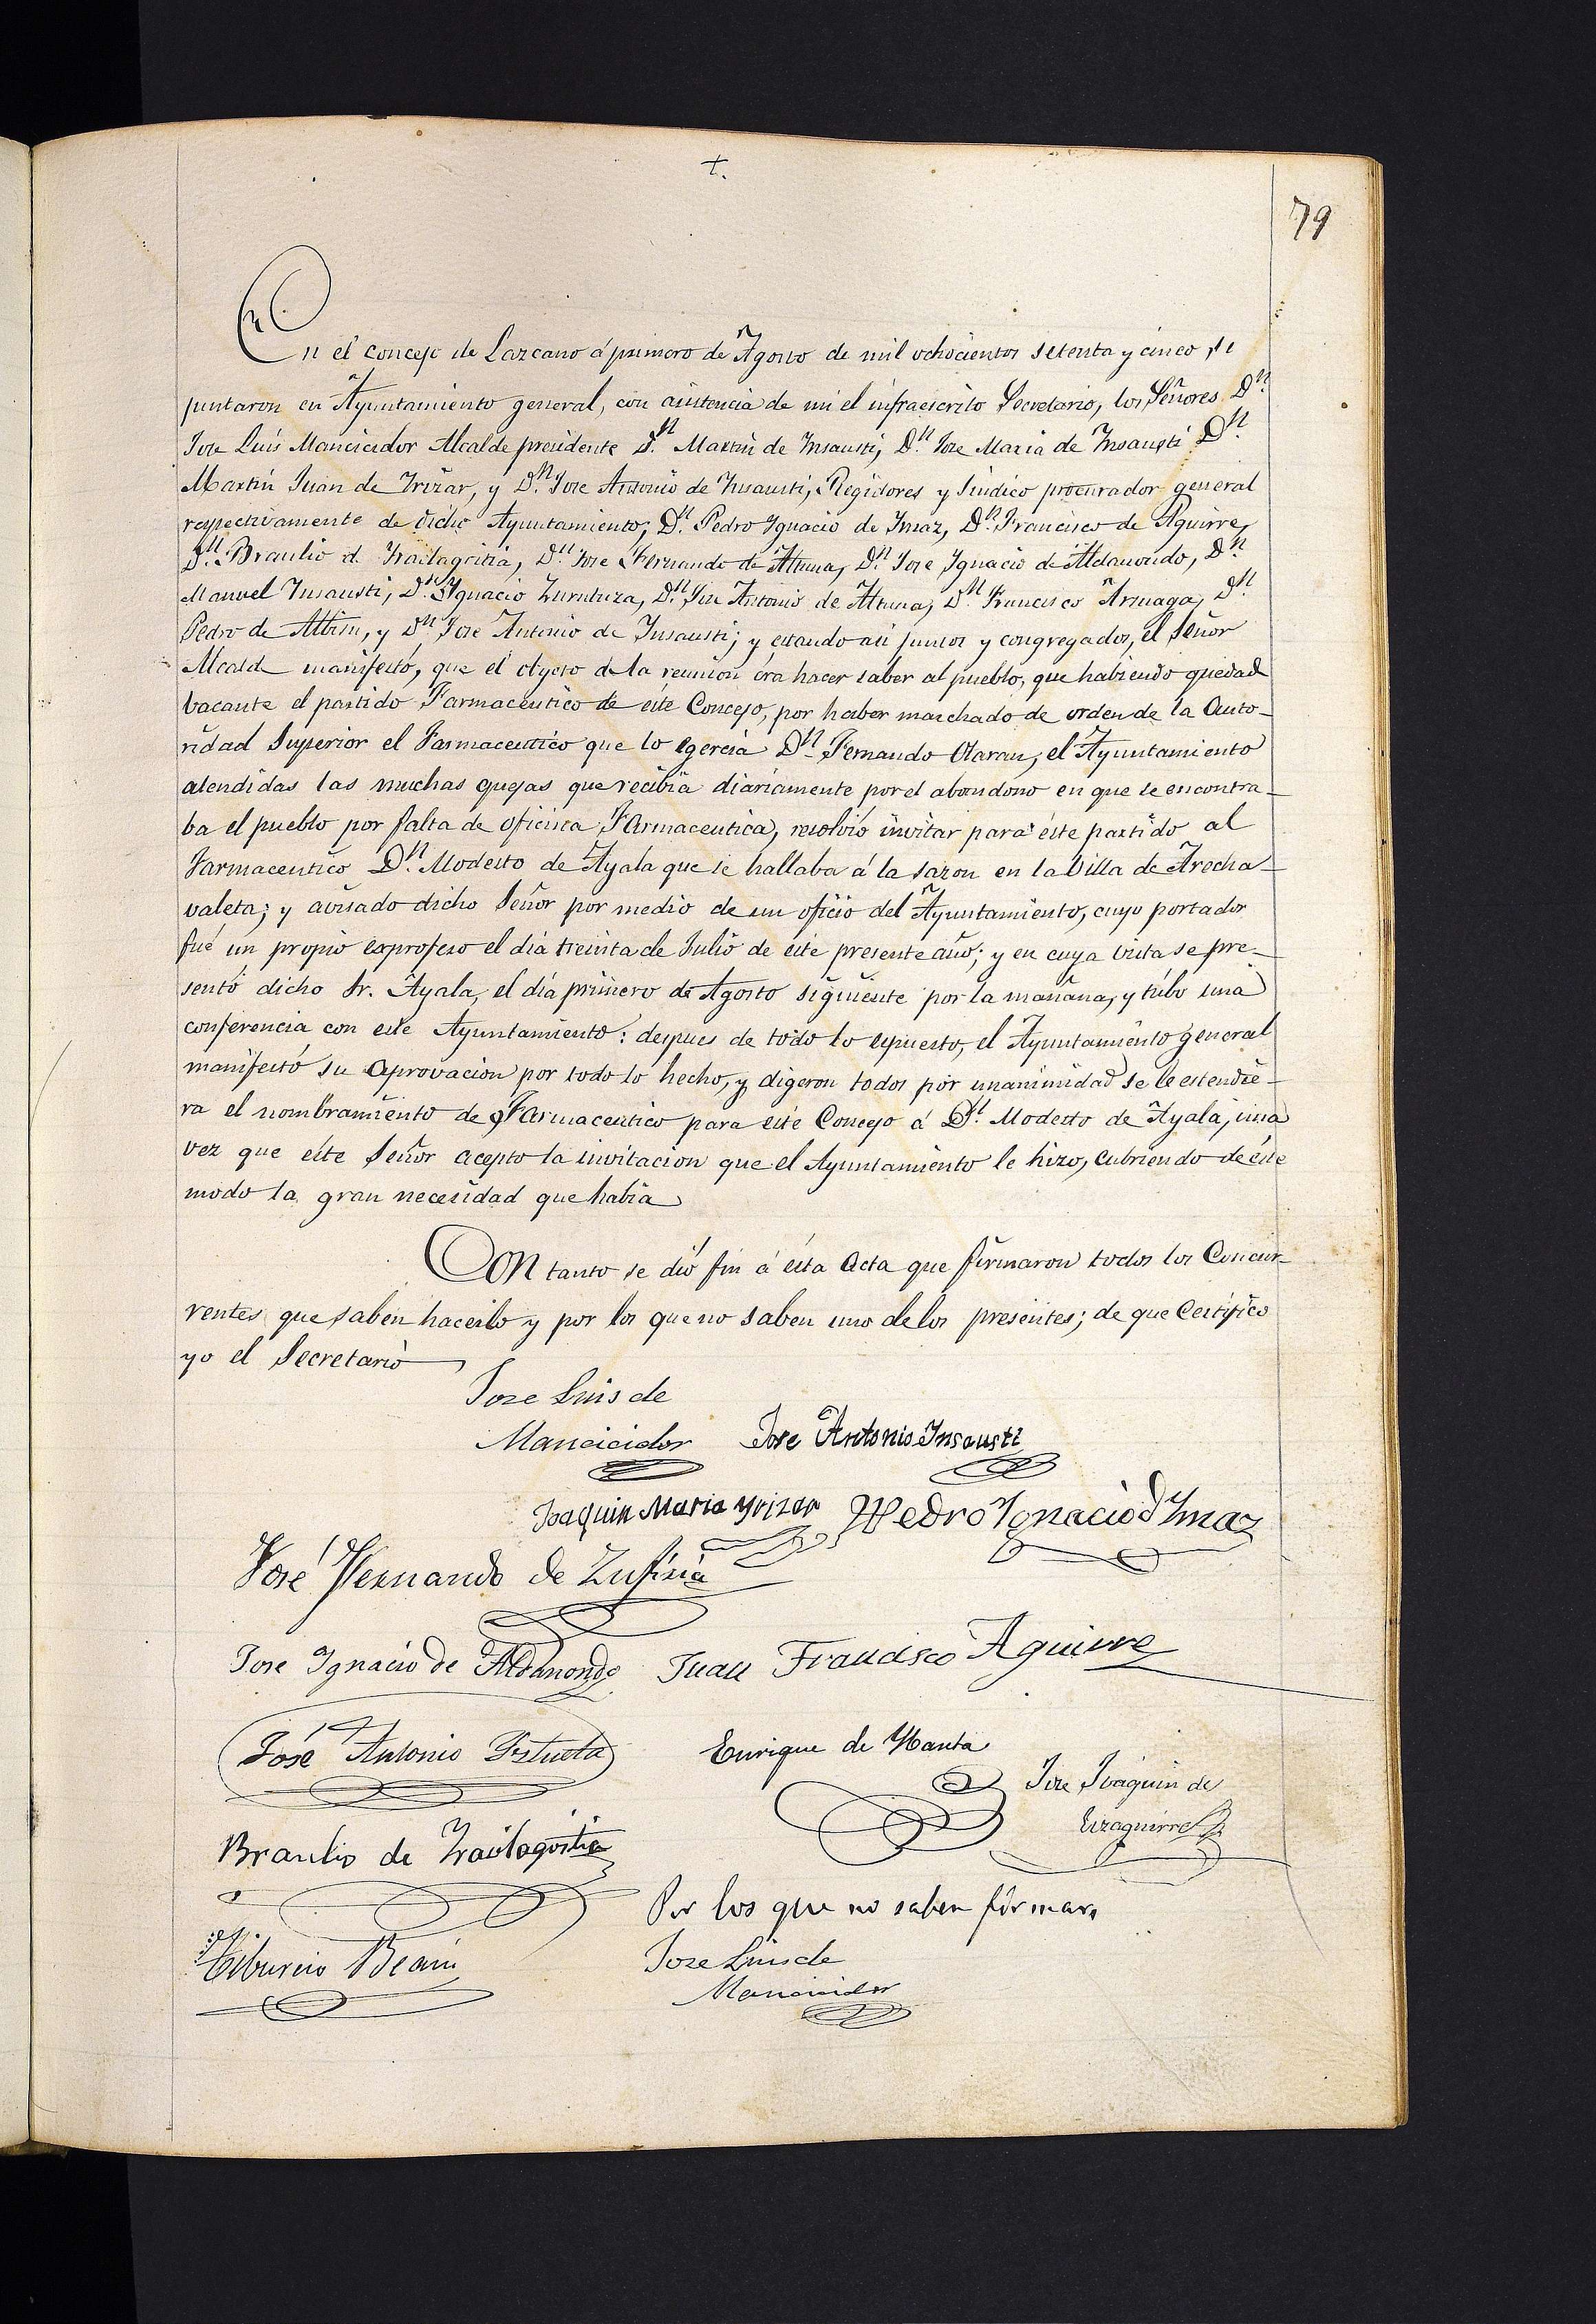 +.
79
En el concejo de Lazcano á primero de Agosto de mil ochocientos setenta y cinco, se
juntaron en Ayuntamiento general, con asistencia de mi el infraescrito Secretario, los Señores Dn.
Jose Luis Mancicidor Alcalde presidente Dn. Martin de Insausti, Dn. Jose Maria de Insausti Dn.
Martin Juan de Irizar, y Dn. Jose Antonio de Insausti, Regidores y Sindico procurador general
respectivamente de dicho Ayuntamiento; Dn. Pedro Ygnacio de Imaz, Dn. Francisco de Aguirre,
Dn. Braulio de Izaitagoitia, Dn. Jose Fernando de Altuna, Dn. Jose Ygnacio de Aldanondo, Dn.
Manuel Insausti, Dn. Ygnacio Zurutuza, Dn. Jose Antonio de Altuna, Dn. Francisco Arsuaga, Dn.
Pedro de Albisu, y Dn. Jose Antonio de Insausti; y estando asi juntos y congregados, el Señor
Alcalde manifestó, que el obgeto de la reunion éra hacer saber al pueblo, que habiendo quedad
vacante el partido Farmaceutico de éste Concejo, por haber marchado de orden de la Auto-
ridad Superior el Farmaceutico que lo egercia Dn. Fernando Olaran, el Ayuntamiento
atendidas las muchas quejas que recibia diariamente por el abandono en que se encontra-
ba el pueblo por falta de oficina Farmaceutica, resolvió invitar para éste partido al
Farmaceutico Dn. Modesto de Ayala que se hallaba á la sazon en la Villa de Arecha-
valeta; y avisado dicho Señor por medio de un oficio del Ayuntamiento, cuyo portador
fué un propio exprofeso el dia treinta de Julio de éste presente año; y en cuya vista se pre-
sentó dicho Sr. Ayala, el dia primero de Agosto siguiente por la mañana, y túbo una
conferencia con este Ayuntamiento: despues de todo lo espuesto, el Ayuntamiento general
manifestó su aprovacion por todo lo hecho, y digeron todos por unanimidad se le estendie-
ra el nombramiento de Farmaceutico para éste Concejo á Dn. Modesto de Ayala, una
vez que éste Señor acepto la invitacion que el Ayuntamiento le hizo, cubriendo de éste
modo la gran necesidad que habia
Con tanto se dió fin á ésta Acta que firmaron todos los Concur-
rentes que saben hacerlo y por los que no saben uno de los presentes; de que Certifico
yo el Secretario
Jose Luis de
Mancicidor Jose Antonio Insausti
Joaquin Maria Yrizar Pedro Ygnacio d Ymaz
José Fernando de
Jose Ygnacio de Aldanondo Juan Francisco Aguirre
José Antonio
Enrique de
Jose Joaquin de
Eizaguirre
Braulio de Izaitagoitia
Por los que no saben firmar,
Tiburcio Jose Luis de
Mancicidor